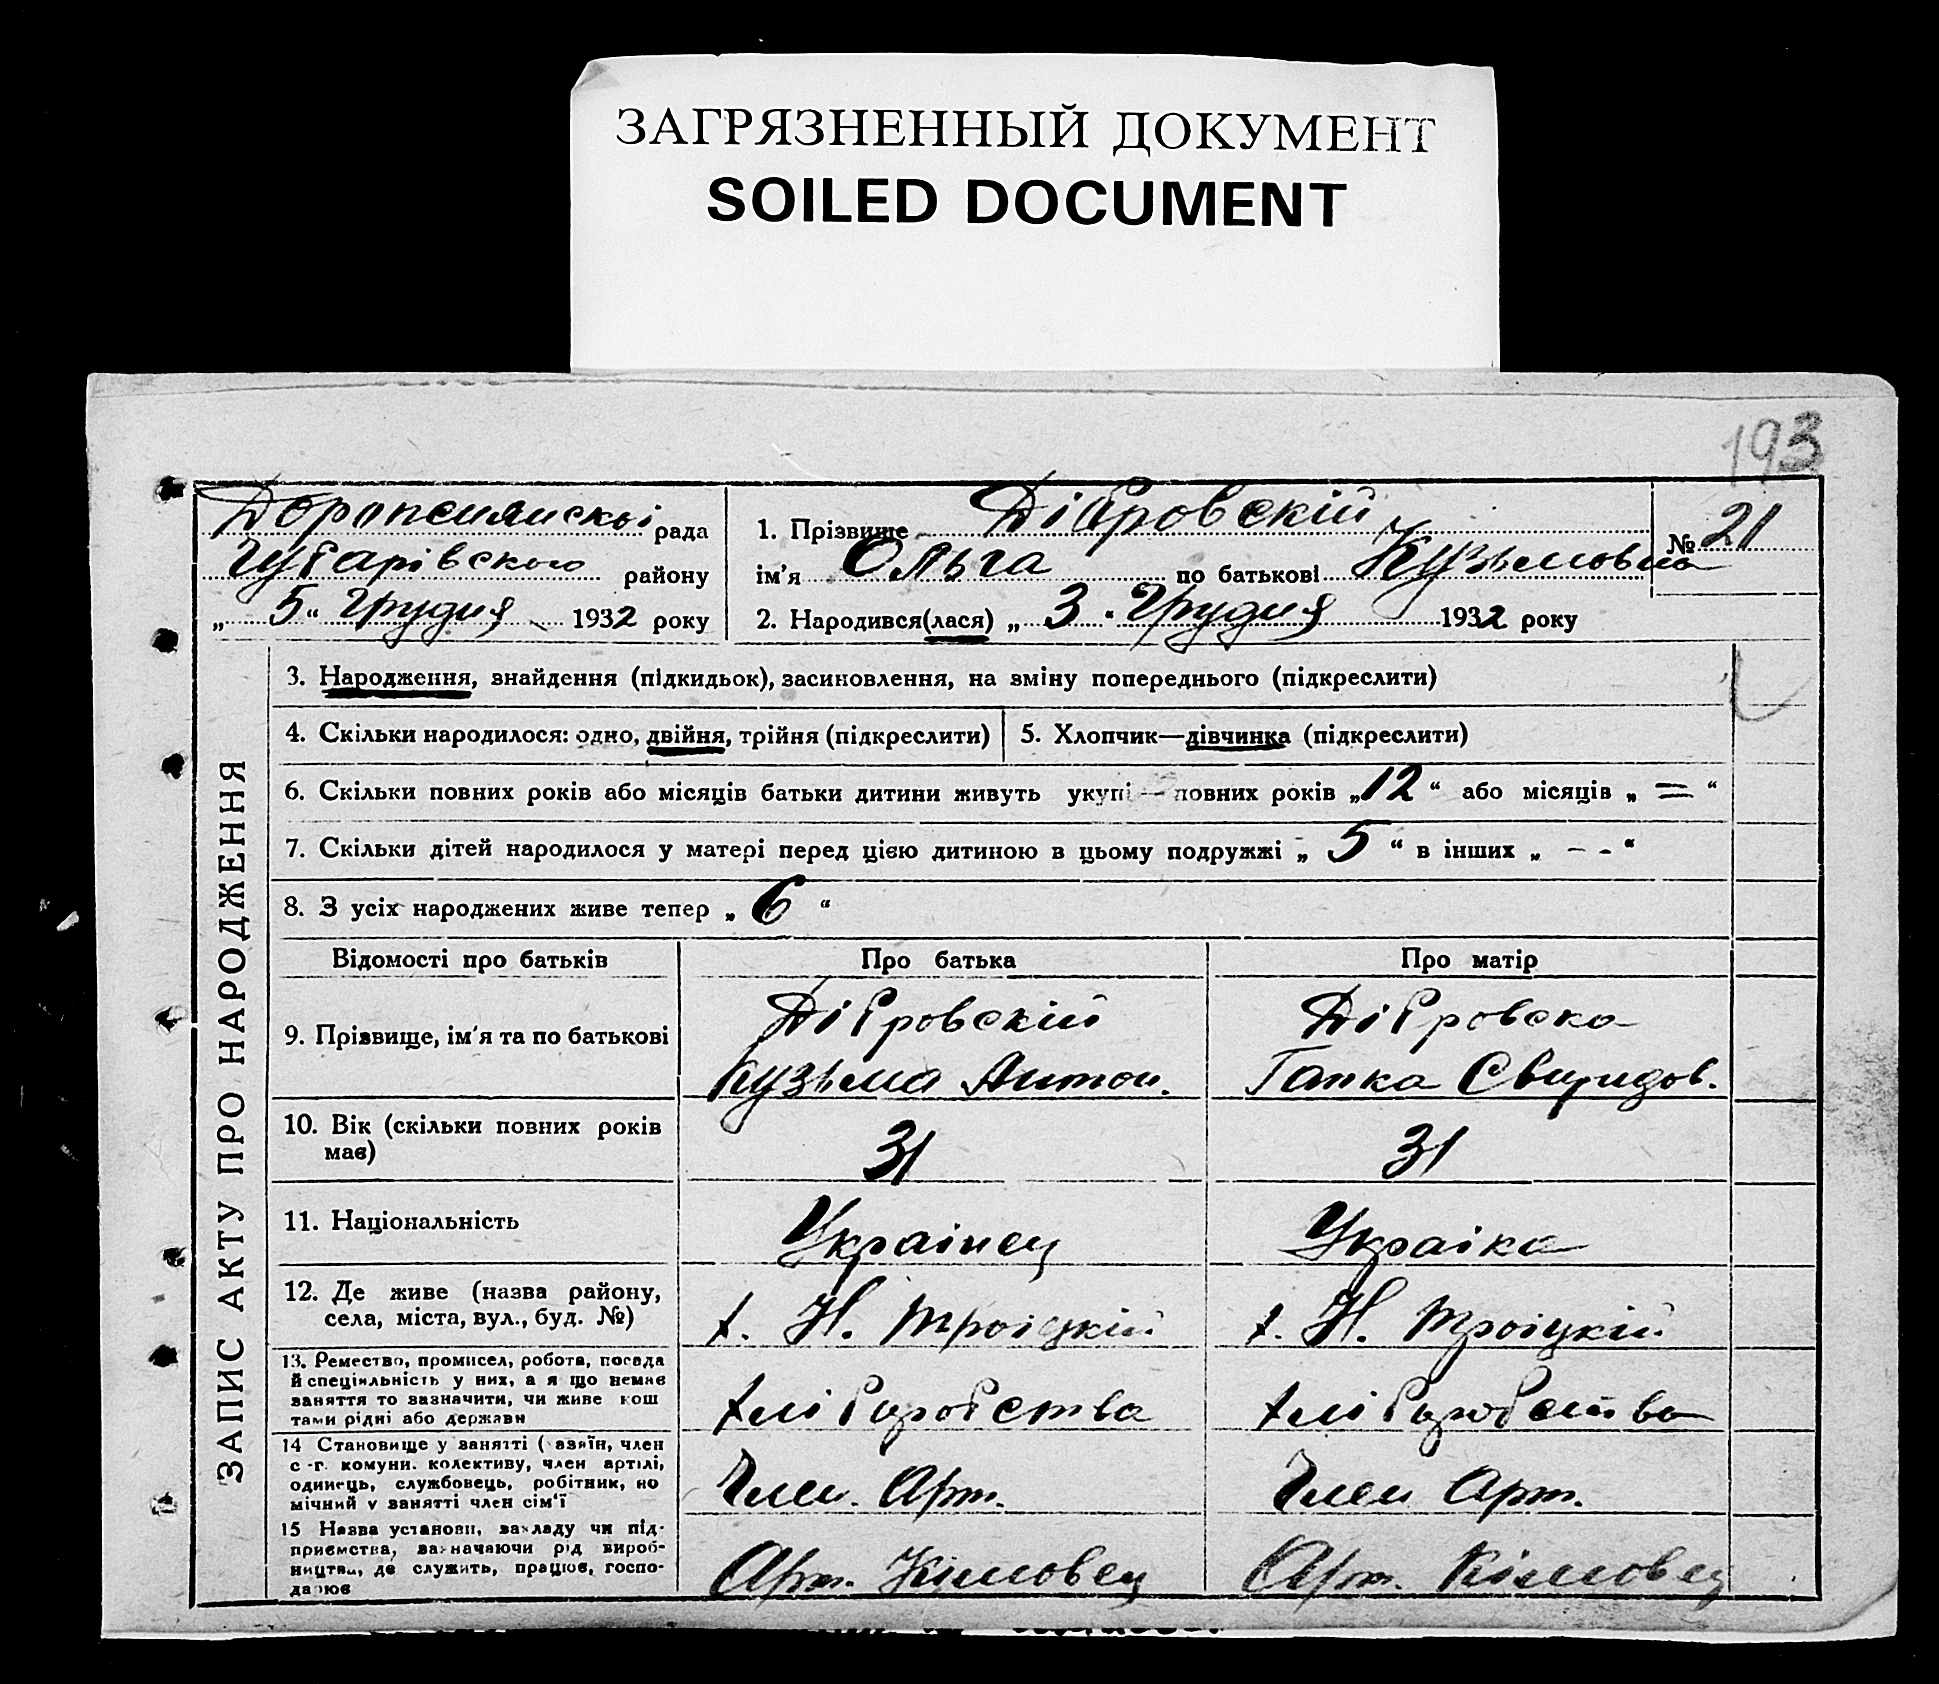 ЗАГРЯЗНЕННЫЙ ДОКУМЕНТ
SOILED DOCUMENT
193
рада
Чубарівского району
„ 5 “ Грудня 1932 року
1. Прізвище Дібровскій
№ 21
ім'я Ольга по батькові Кузьмовна
2. Народився(лася) „ 3 “ Грудня 1932 року
ЗАПИС АКТУ ПРО НАРОДЖЕННЯ
3. Народження, знайдення (підкидьок), засиновлення, на зміну попереднього (підкреслити)
4. Скільки народилося: одно, двійня, трійня (підкреслити)
5. Хлопчик—дівчинка (підкреслити)
6. Скільки повних років або місяців батьки дитини живуть укупі — повних років „ 12 “ або місяців „ = “
7. Скільки дітей народилося у матері перед цією дитиною в цьому подружжі „ 5 “ в інших „ - - “
8. З усіх народжених живе тепер „ 6 “
Відомості про батьків Про батька Про матір
9. Прізвище, ім'я та по батькові
Дібровскій
Кузьма Антон.
Дібровска
Ганка Свиридов.
10. Вік (скільки повних років має)
31
31
11. Національність
Українец
Українка
12. Де живе (назва району,
села, міста, вул., буд. №)
х. Н. Троіцкій
х. Н. Троіцкій
13. Ремество, промисел, робота, посада
й спеціяльність у них, а якщо немає
заняття то зазначити, чи живе кош
тами рідні або держави
Хліборобства
Хліборобства
14 Становище у занятті (хазяїн, член
с.-г. комуни. колективу, член артілі,
одинець, службовець, робітник, по
мічний у занятті член сім'ї
Член. Арт.
Член Арт.
15 Назва установи, закладу чи під-
приємства, зазначаючи рід вироб-
ництва, де служить, працює, госпо-
дарює
Арт. Кімовец
Арт. Кімовец